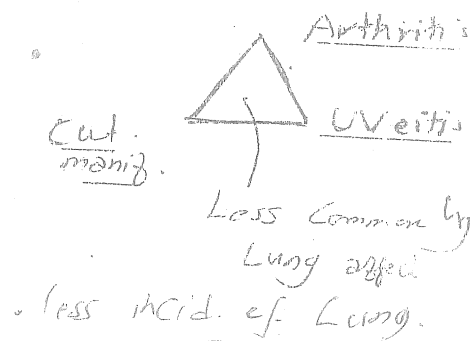 Arthritis
Cut.
manif.
Uveitis
Less commonly
Lung
. less incid. of Lung.